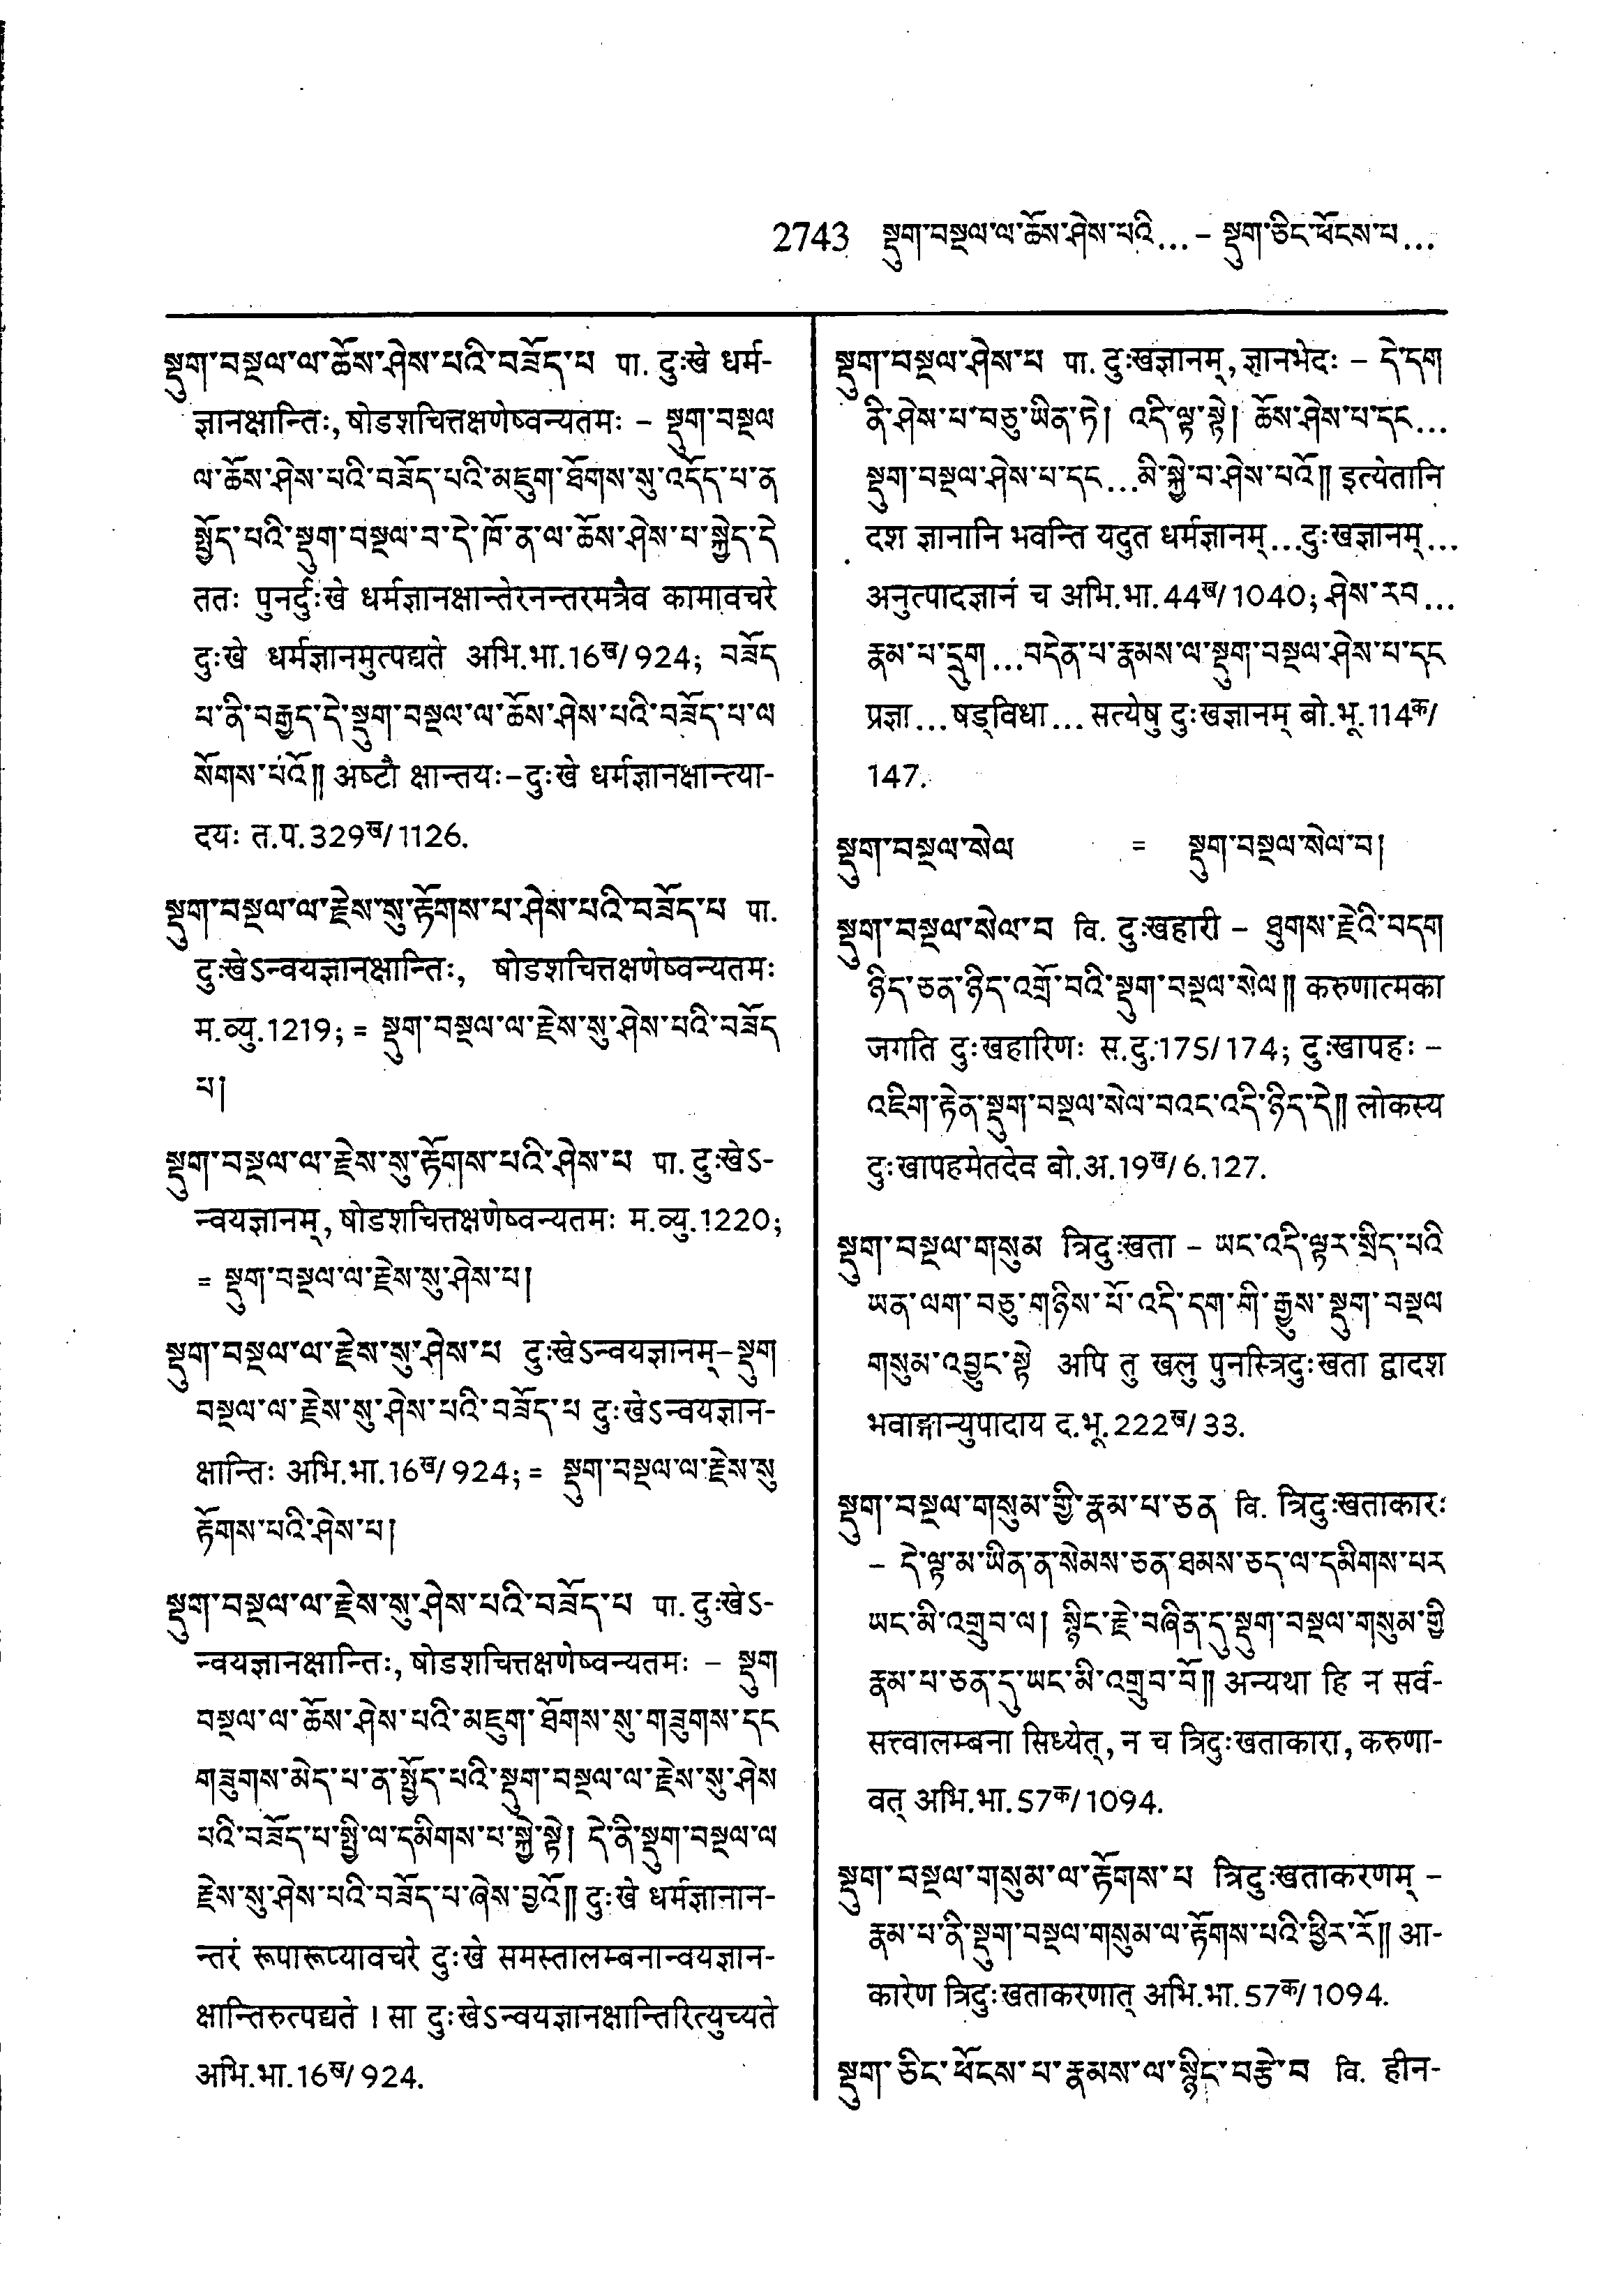 2743 སྡུག་བསྔལ་ལ་ཆོས་ཤེས་པའི... – སྡུག་ཅིང་ཕོངས་པ...
སྡུག་བསྔལ་ལ་ཆོས་ཤེས་པའི་བཟོད་པ पा. दुःखे धर्म-
ज्ञानक्षान्तिः, षोडशचित्तक्षणेष्वन्यतमः – སྡུག་བསྔལ
ལ་ཆོས་ཤེས་པའི་བཟོད་པའི་མཇུག་ཐོགས་སུ་འདོད་པ་ན
སྤྱོད་པའི་སྡུག་བསྔལ་བ་དེ་ཁོ་ན་ལ་ཆོས་ཤེས་པ་སྐྱེད་དེ
ततः पुनर्दुःखे धर्मज्ञानक्षान्तेरनन्तरमत्रैव कामावचरे
दुःखे धर्मज्ञानमुत्पद्यते अभि.भा.16ख/924; བཟོད
པ་ནི་བརྒྱད་དེ་སྡུག་བསྔལ་ལ་ཆོས་ཤེས་པའི་བཟོད་པ་ལ
སོགས་པའོ༎ अष्टौ क्षान्तयः–दुःखे धर्मज्ञानक्षान्त्या-
दयः त.प.329ख/1126.
སྡུག་བསྔལ་ལ་རྗེས་སུ་རྟོགས་པ་ཤེས་པའི་བཟོད་པ पा.
दुःखेऽन्वयज्ञानक्षान्तिः, षोडशचित्तक्षणेष्वन्यतमः
म.व्यु.1219; = སྡུག་བསྔལ་ལ་རྗེས་སུ་ཤེས་པའི་བཟོད
པ།
སྡུག་བསྔལ་ལ་རྗེས་སུ་རྟོགས་པའི་ཤེས་པ पा. दुःखेऽ-
न्वयज्ञानम्, षोडशचित्तक्षणेष्वन्यतमः म.व्यु.1220;
= སྡུག་བསྔལ་ལ་རྗེས་སུ་ཤེས་པ།
སྡུག་བསྔལ་ལ་རྗེས་སུ་ཤེས་པ दुःखेऽन्वयज्ञानम्–སྡུག
བསྔལ་ལ་རྗེས་སུ་ཤེས་པའི་བཟོད་པ दुःखेऽन्वयज्ञान-
क्षान्तिः अभि.भा.16ख/924; = སྡུག་བསྔལ་ལ་རྗེས་སུ
རྟོགས་པའི་ཤེས་པ།
སྡུག་བསྔལ་ལ་རྗེས་སུ་ཤེས་པའི་བཟོད་པ पा. दुःखेऽ-
न्वयज्ञानक्षान्तिः, षोडशचित्तक्षणेष्वन्यतमः – སྡུག
བསྔལ་ལ་ཆོས་ཤེས་པའི་མཇུག་ཐོགས་སུ་གཟུགས་དང
གཟུགས་མེད་པ་ན་སྤྱོད་པའི་སྡུག་བསྔལ་ལ་རྗེས་སུ་ཤེས
པའི་བཟོད་པ་སྤྱི་ལ་དམིགས་པ་སྐྱེ་སྟེ། དེ་ནི་སྡུག་བསྔལ་ལ
རྗེས་སུ་ཤེས་པའི་བཟོད་པ་ཞེས་བྱའོ༎ दुःखे धर्मज्ञानान-
न्तरं रूपारूप्यावचरे दुःखे समस्तालम्बनान्वयज्ञान-
क्षान्तिरुत्पद्यते । सा दुःखेऽन्वयज्ञानक्षान्तिरित्युच्यते
अभि.भा.16ख/924.
སྡུག་བསྔལ་ཤེས་པ पा. दुःखज्ञानम्, ज्ञानभेदः – དེ་དག
ནི་ཤེས་པ་བཅུ་ཡིན་ཏེ། འདི་ལྟ་སྟེ། ཆོས་ཤེས་པ་དང...
སྡུག་བསྔལ་ཤེས་པ་དང...མི་སྐྱེ་བ་ཤེས་པའོ༎ इत्येतानि
दश ज्ञानानि भवन्ति यदुत धर्मज्ञानम्...दुःखज्ञानम्...
अनुत्पादज्ञानं च अभि.भा.44ख/1040; ཤེས་རབ...
རྣམ་པ་དྲུག...བདེན་པ་རྣམས་ལ་སྡུག་བསྔལ་ཤེས་པ་དང
प्रज्ञा...षड्विधा...सत्येषु दुःखज्ञानम् बो.भू.114क/
147.
སྡུག་བསྔལ་སེལ = སྡུག་བསྔལ་སེལ་བ།
སྡུག་བསྔལ་སེལ་བ वि. दुःखहारी – ཐུགས་རྗེའི་བདག
ཉིད་ཅན་ཉིད་འགྲོ་བའི་སྡུག་བསྔལ་སེལ༎ करुणात्मका
जगति दुःखहारिणः स.दु.175/174; दुःखापहः –
འཇིག་རྟེན་སྡུག་བསྔལ་སེལ་བའང་འདི་ཉིད་དེ༎ लोकस्य
दुःखापहमेतदेव बो.अ.19ख/6.127.
སྡུག་བསྔལ་གསུམ त्रिदुःखता – ཡང་འདི་ལྟར་སྲིད་པའི
ཡན་ལག་བཅུ་གཉིས་པོ་འདི་དག་གི་རྒྱུས་སྡུག་བསྔལ
གསུམ་འབྱུང་སྟེ अपि तु खलु पुनस्त्रिदुःखता द्वादश
भवाङ्गान्युपादाय द.भू.222ख/33.
སྡུག་བསྔལ་གསུམ་གྱི་རྣམ་པ་ཅན वि. त्रिदुःखताकारः
– དེ་ལྟ་མ་ཡིན་ན་སེམས་ཅན་ཐམས་ཅད་ལ་དམིགས་པར
ཡང་མི་འགྲུབ་ལ། སྙིང་རྗེ་བཞིན་དུ་སྡུག་བསྔལ་གསུམ་གྱི
རྣམ་པ་ཅན་དུ་ཡང་མི་འགྲུབ་བོ༎ अन्यथा हि न सर्व-
सत्त्वालम्बना सिध्येत्, न च त्रिदुःखताकारा, करुणा-
वत् अभि.भा.57क/1094.
སྡུག་བསྔལ་གསུམ་ལ་རྟོགས་པ त्रिदुःखताकरणम् –
རྣམ་པ་ནི་སྡུག་བསྔལ་གསུམ་ལ་རྟོགས་པའི་ཕྱིར་རོ༎ आ-
कारेण त्रिदुःखताकरणात् अभि.भा.57क/1094.
སྡུག་ཅིང་ཕོངས་པ་རྣམས་ལ་སྙིང་བརྩེ་བ वि. हीन-